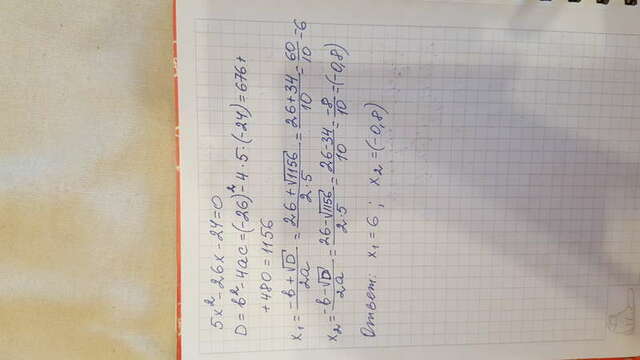 5x² - 26x - 24 = 0
D = b² - 4ac = (-26)² - 4 · 5 · (-24) = 676 +
+ 480 = 1156
x₁ = (-b + √D)/(2a) = (26 + √1156)/(2·5) = (26 + 34)/10 = 60/10 = 6
x₂ = (-b - √D)/(2a) = (26 - √1156)/(2·5) = (26 - 34)/10 = -8/10 = (-0,8)
Ответ: x₁ = 6 ; x₂ = (-0,8)